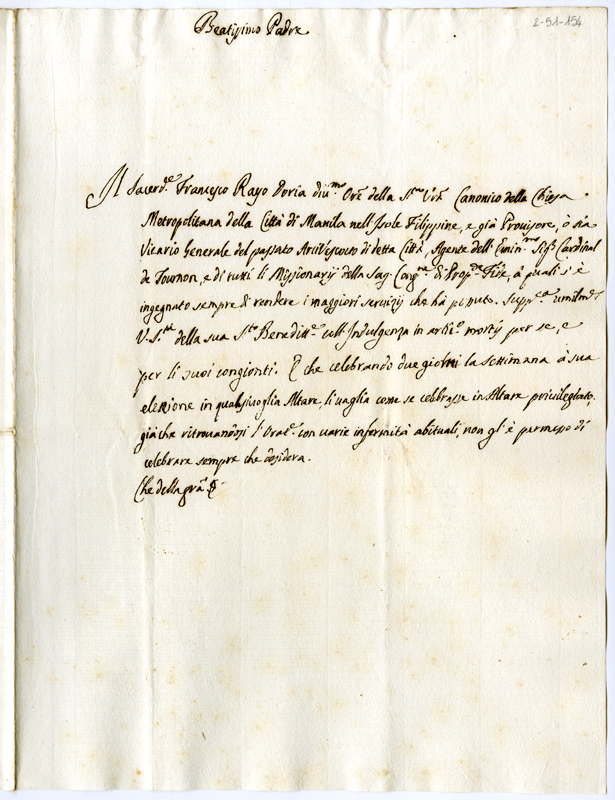 2-51-154
Beatissimo Padre
Il Sacerd.te Francesco Rayo Doria diu.mo Ore della S.tà Vrã Canonico della Chiesa
Metropolitana della Città di Manila nell Isole Filippine, e già Prouisore, ò sia
Vicario Generale del passato Arciuescouo di detta Città, Agente dell' Emin.mo Sig.r Cardinal
de Tournon, e di tutti li Missionarij della Sag. Cong.ne di Prop.da Fide, à quali s'è
ingegnato sempre di rendere i maggiori seruizij che hà potuto. Supp.ca umilmẽ.
V. S.tà della sua S.ta Benedit.ne coll'Indulgenza in artic.o mortis per se, e
per li suoi congionti. E che celebrando due giorni la settimana à sua
elezzione in qualsiuoglia Altare, li uaglia come se celebrasse in Altare priuilegiato,
già che ritrouandosi l'Orat.e con uarie infermità abituali, non gl'è permesso di
celebrare sempre che desidera.
Che della grã &